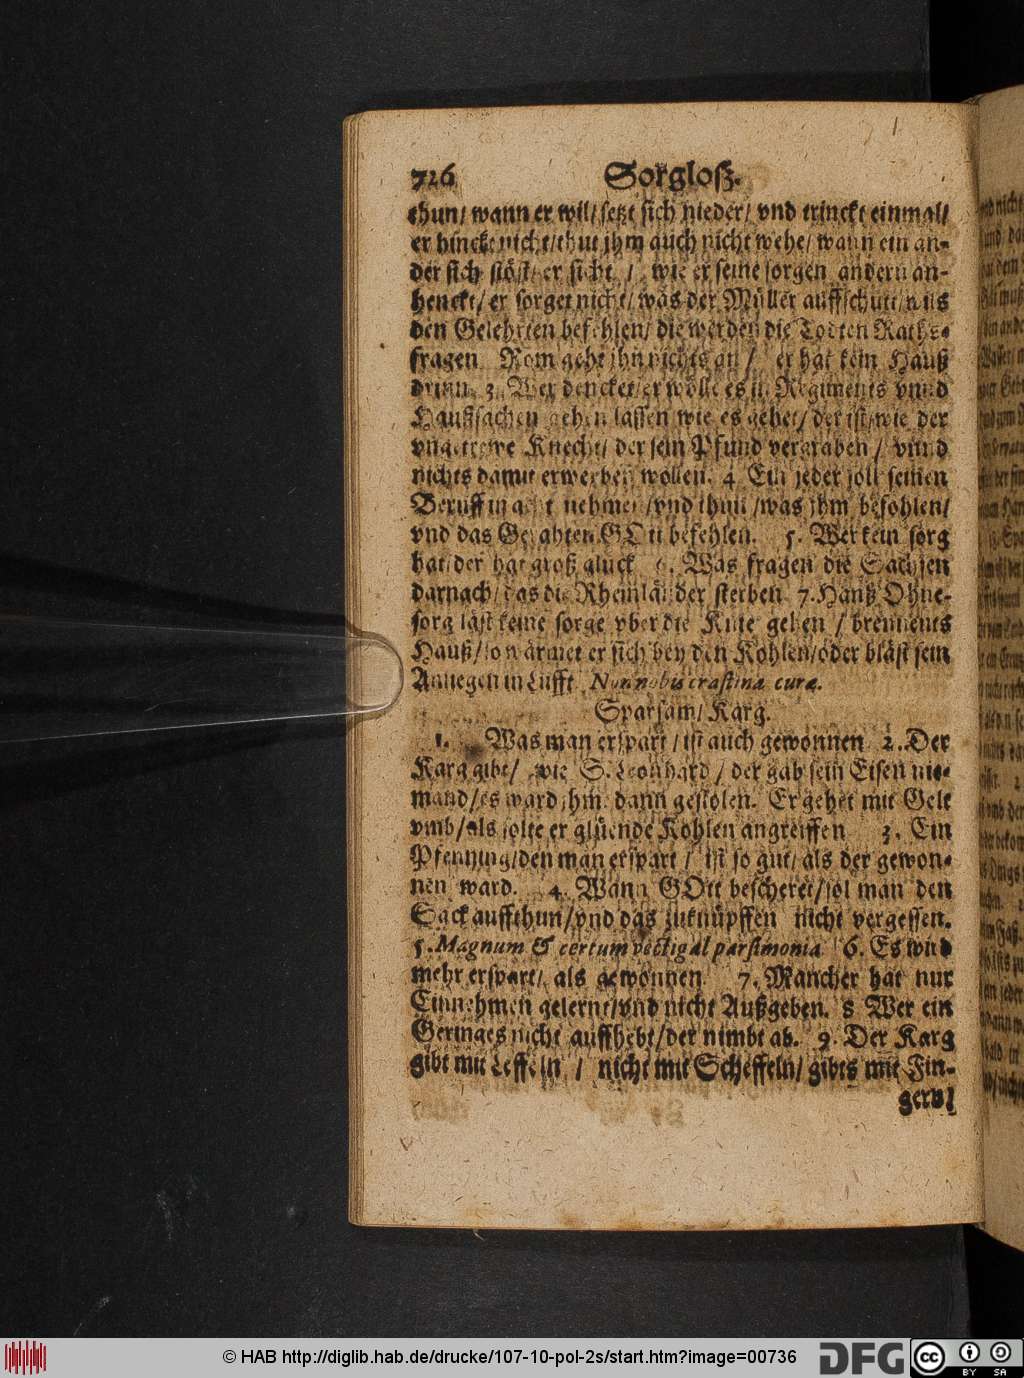 726 Sorgloß.
thun/ wann er wil/ setzt sich nieder/ vnd trinckt einmal/
er hinckt nicht/ thut jhm auch nicht wehe/ wann ein an-
der sich stöst/ er sicht / wie er seine sorgen andern an-
henckt/ er sorget nicht/ was der Müller auffschutt/
den Gelehrten befehlen/ die werden die Todten Raths-
fragen Rom geht jhn nichts an / er hat kein Hauß
drinn. 3. Wer dencket/ er wölle es in Regiments vnnd
Haußsachen gehen lassen wie es gehet/ der ist/ wie der
vngetrewe Knecht/ der sein Pfund vergraben / vnnd
nichts damit erwerben wollen. 4. Ein jeder soll seinen
Beruff in acht nehmen/ vnd thun/ was jhm befohlen/
vnd das Gerahten GOtt befehlen. 5. Wer kein sorg
hat/ der hat groß glück 6. Was fragen die Sachsen
darnach/ das die Rheinländer sterben 7. Hanß Ohne-
sorg läst keine sorge vber die Knie gehen / brennents
Hauß/ so wärmet er sich bey den Kohlen/ oder bläst sein
Anliegen in Lufft Non nobis crastinæ curæ.
Sparsam/ Karg.
1. Was man erspart / ist auch gewonnen 2. Der
Karg gibt/ wie S. Leonhard / der gab sein Eisen nie-
mand/ es ward jhm dann gestolen. Er gehet mit Gelt
vmb/ als solte er glüende Kohlen angreiffen 3. Ein
Pfenning/ den man erspart / ist so gut/ als der gewon-
nen ward. 4. Wann GOtt bescheret/ sol man den
Sack auffthun/ vnd das zuknüpffen nicht vergessen.
5. Magnum & certum vectigal parsimonia 6. Es wird
mehr erspart/ als gewonnen 7. Mancher hat nur
Einnehmen gelernt/ vnd nicht Außgeben. 8 Wer ein
Geringes nicht auffhebt/ der nimbt ab. 9. Der Karg
gibt mit Leffeln / nicht mit Scheffeln/ gibts mit Fin-
gern/
© HAB http://diglib.hab.de/drucke/107-10-pol-2s/start.htm?image=00736
DFG
cc BY SA